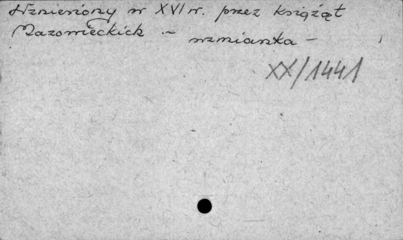 Wzniesiony w XVI w. przez książąt
Mazowieckich - wzmianka -
XX/1441